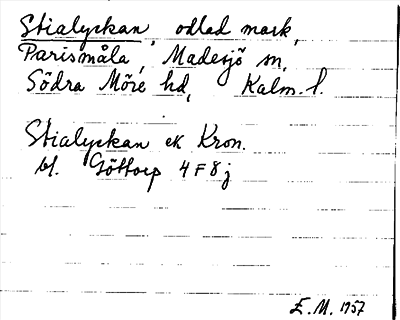 Stialyckan, odlad mark,
Parismåla, Madesjö sn,
Södra Möre hd, Kalm. l.
Stialyckan ek Kron.
bl. Göttorp 4F8j
E.M. 1957